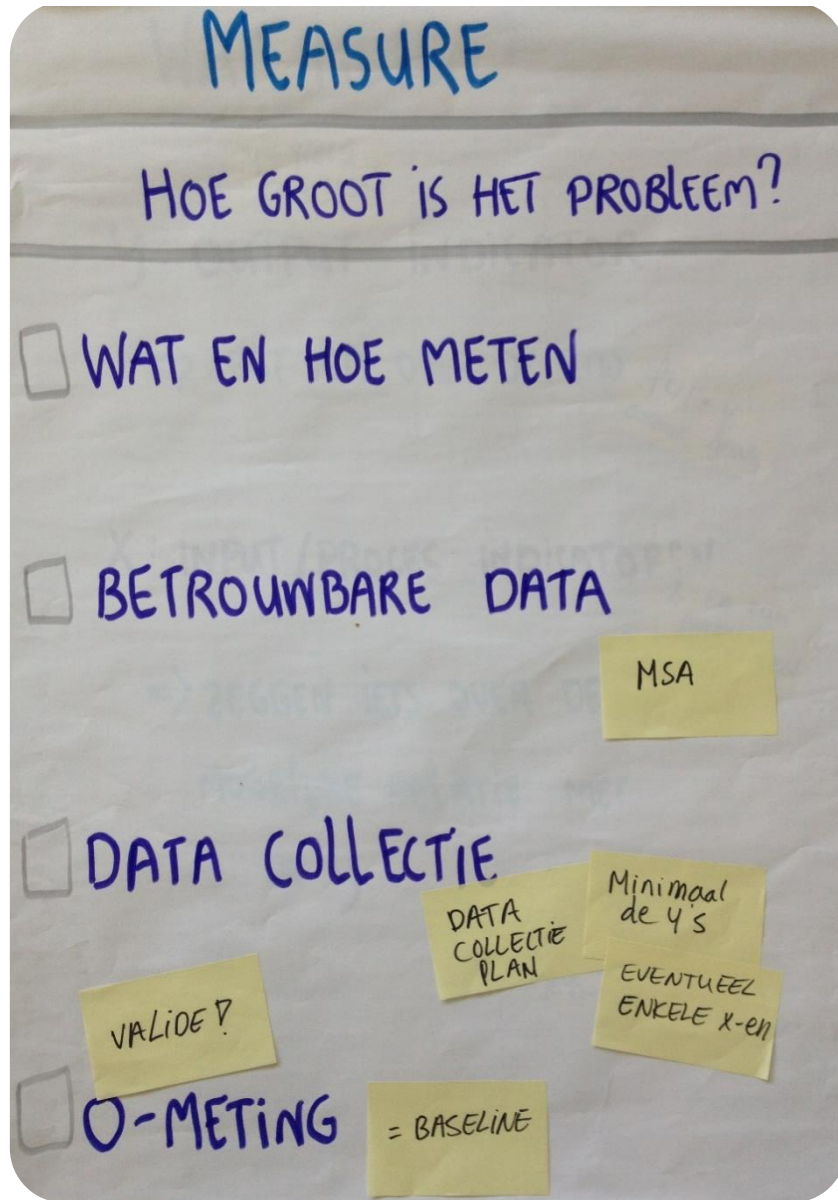 MEASURE
HOE GROOT IS HET PROBLEEM?
WAT EN HOE METEN
BETROUWBARE DATA
MSA
DATA COLLECTIE
DATA
COLLECTIE
PLAN
Minimaal
de y's
EVENTUEEL
ENKELE X-en
VALIDE?
0-METING
= BASELINE